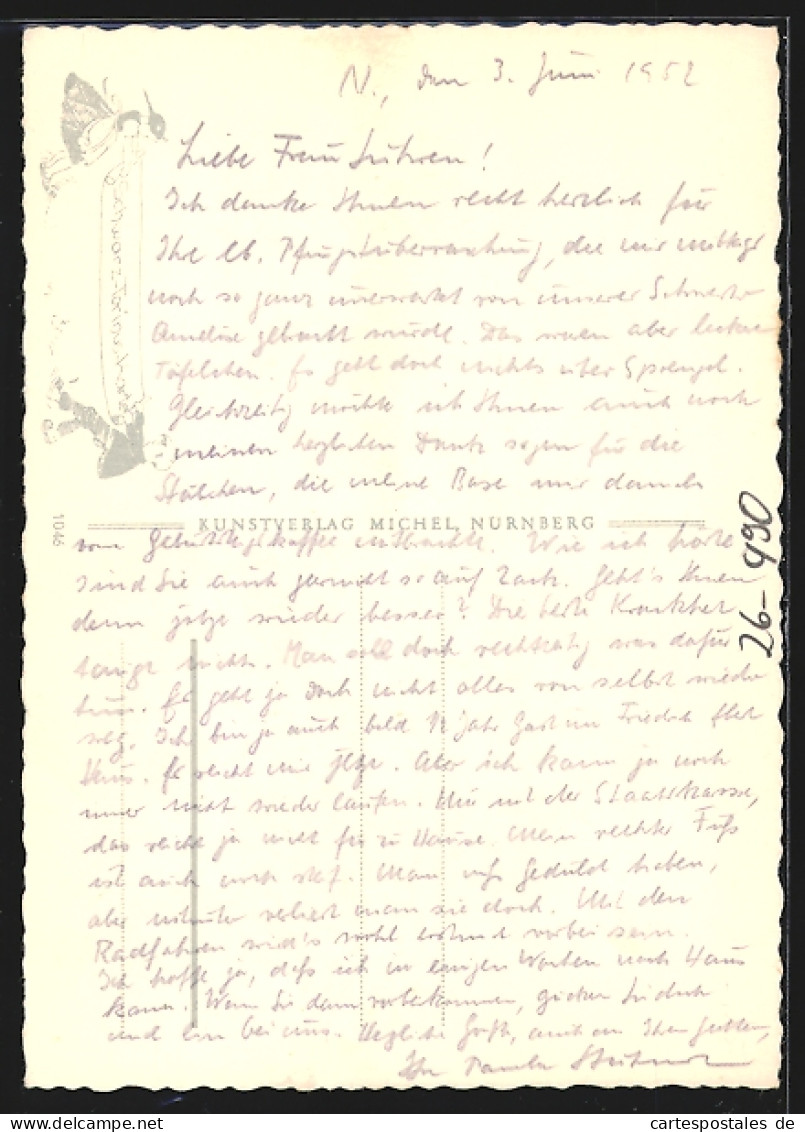 N., den 3. Juni 1952
Liebe Frau
Ich danke Ihnen recht herzlich für
Ihre lb. Pfingstüberraschung, die mir mittags
noch so ganz unerwartet von unserer Schwester
Annelise gebracht wurde. Das waren aber leckere
Täfelchen. Es geht doch nichts über Sprengel.
Gleichzeitig möchte ich Ihnen auch noch
meinen herzlichen Dank sagen für die
die meine Base mir damals
KUNSTVERLAG MICHEL, NÜRNBERG
1046
vom Geburtstagskaffee mitbrachte. Wie ich hörte
sind Sie auch garnicht so auf Zack. Geht's Ihnen
denn jetzt wieder besser? Die beste Krankheit
taugt nichts. Man soll doch rechtzeitig was dafür
tun. Es geht ja doch nicht alles von selbst wieder
weg. Ich bin ja auch bald ½ Jahr Gast im Friedrich
Haus. Es reicht mir jetzt. Aber ich kann ja noch
immer nicht wieder laufen. Nur mit der
das reicht ja nicht für zu Hause. Mein rechter Fuß
ist auch noch steif. Man muß Geduld haben,
aber mitunter verliert man sie doch. Mit dem
Radfahren wird's wohl vorbei sein.
Ich hoffe ja, daß ich in einigen Wochen nach Haus
kann. Wenn Sie dann vorbeikommen, gucken Sie doch
mal ein bei uns. Herzliche Grüße, auch an Ihren Gatten,
Ihr
26-490
www.cartespostales.de
cartespostales de